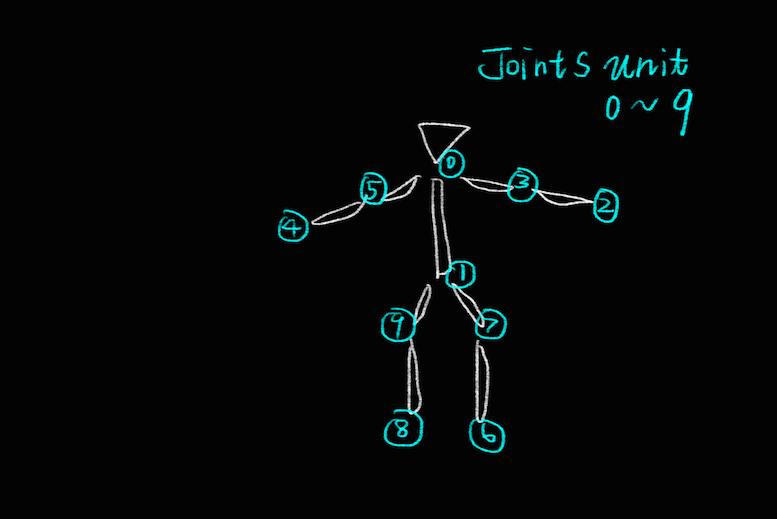 Joints unit
0 ~ 9
0
5
3
4
2
1
9
7
8
6